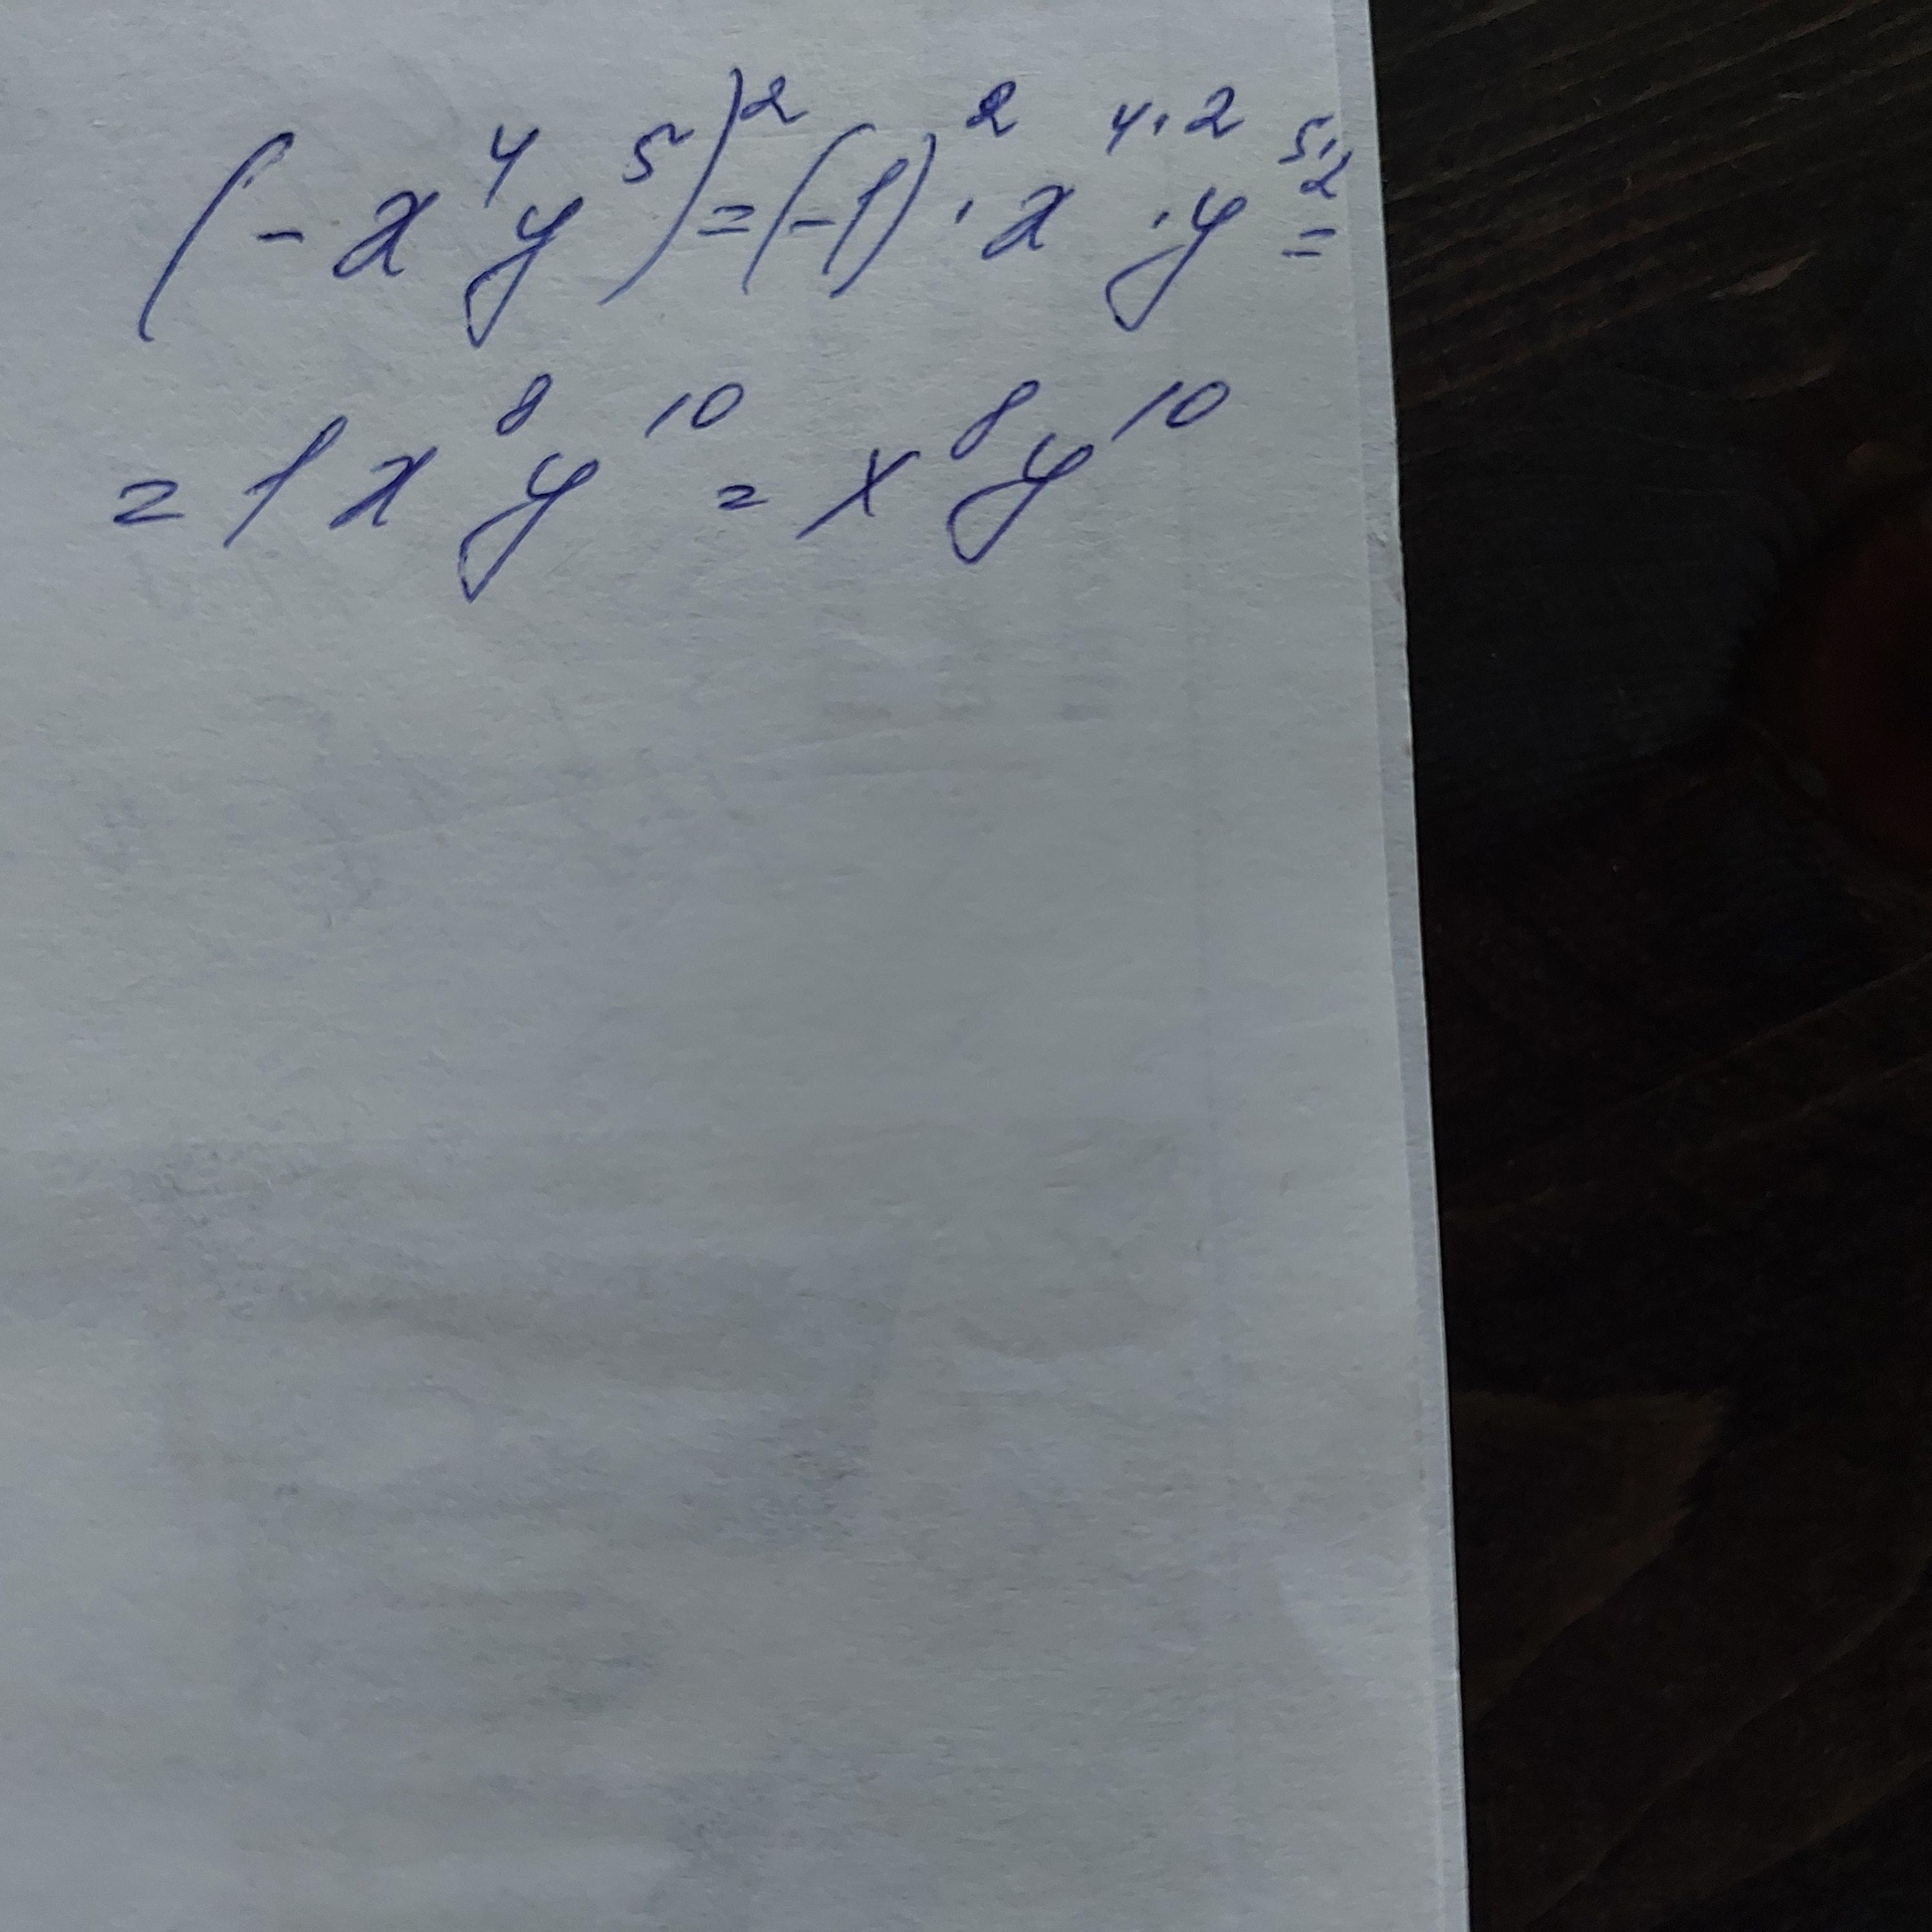 (-x⁴y⁵)² = (-1)² · x⁴·² · y⁵·² =
= 1x⁸y¹⁰ = x⁸y¹⁰